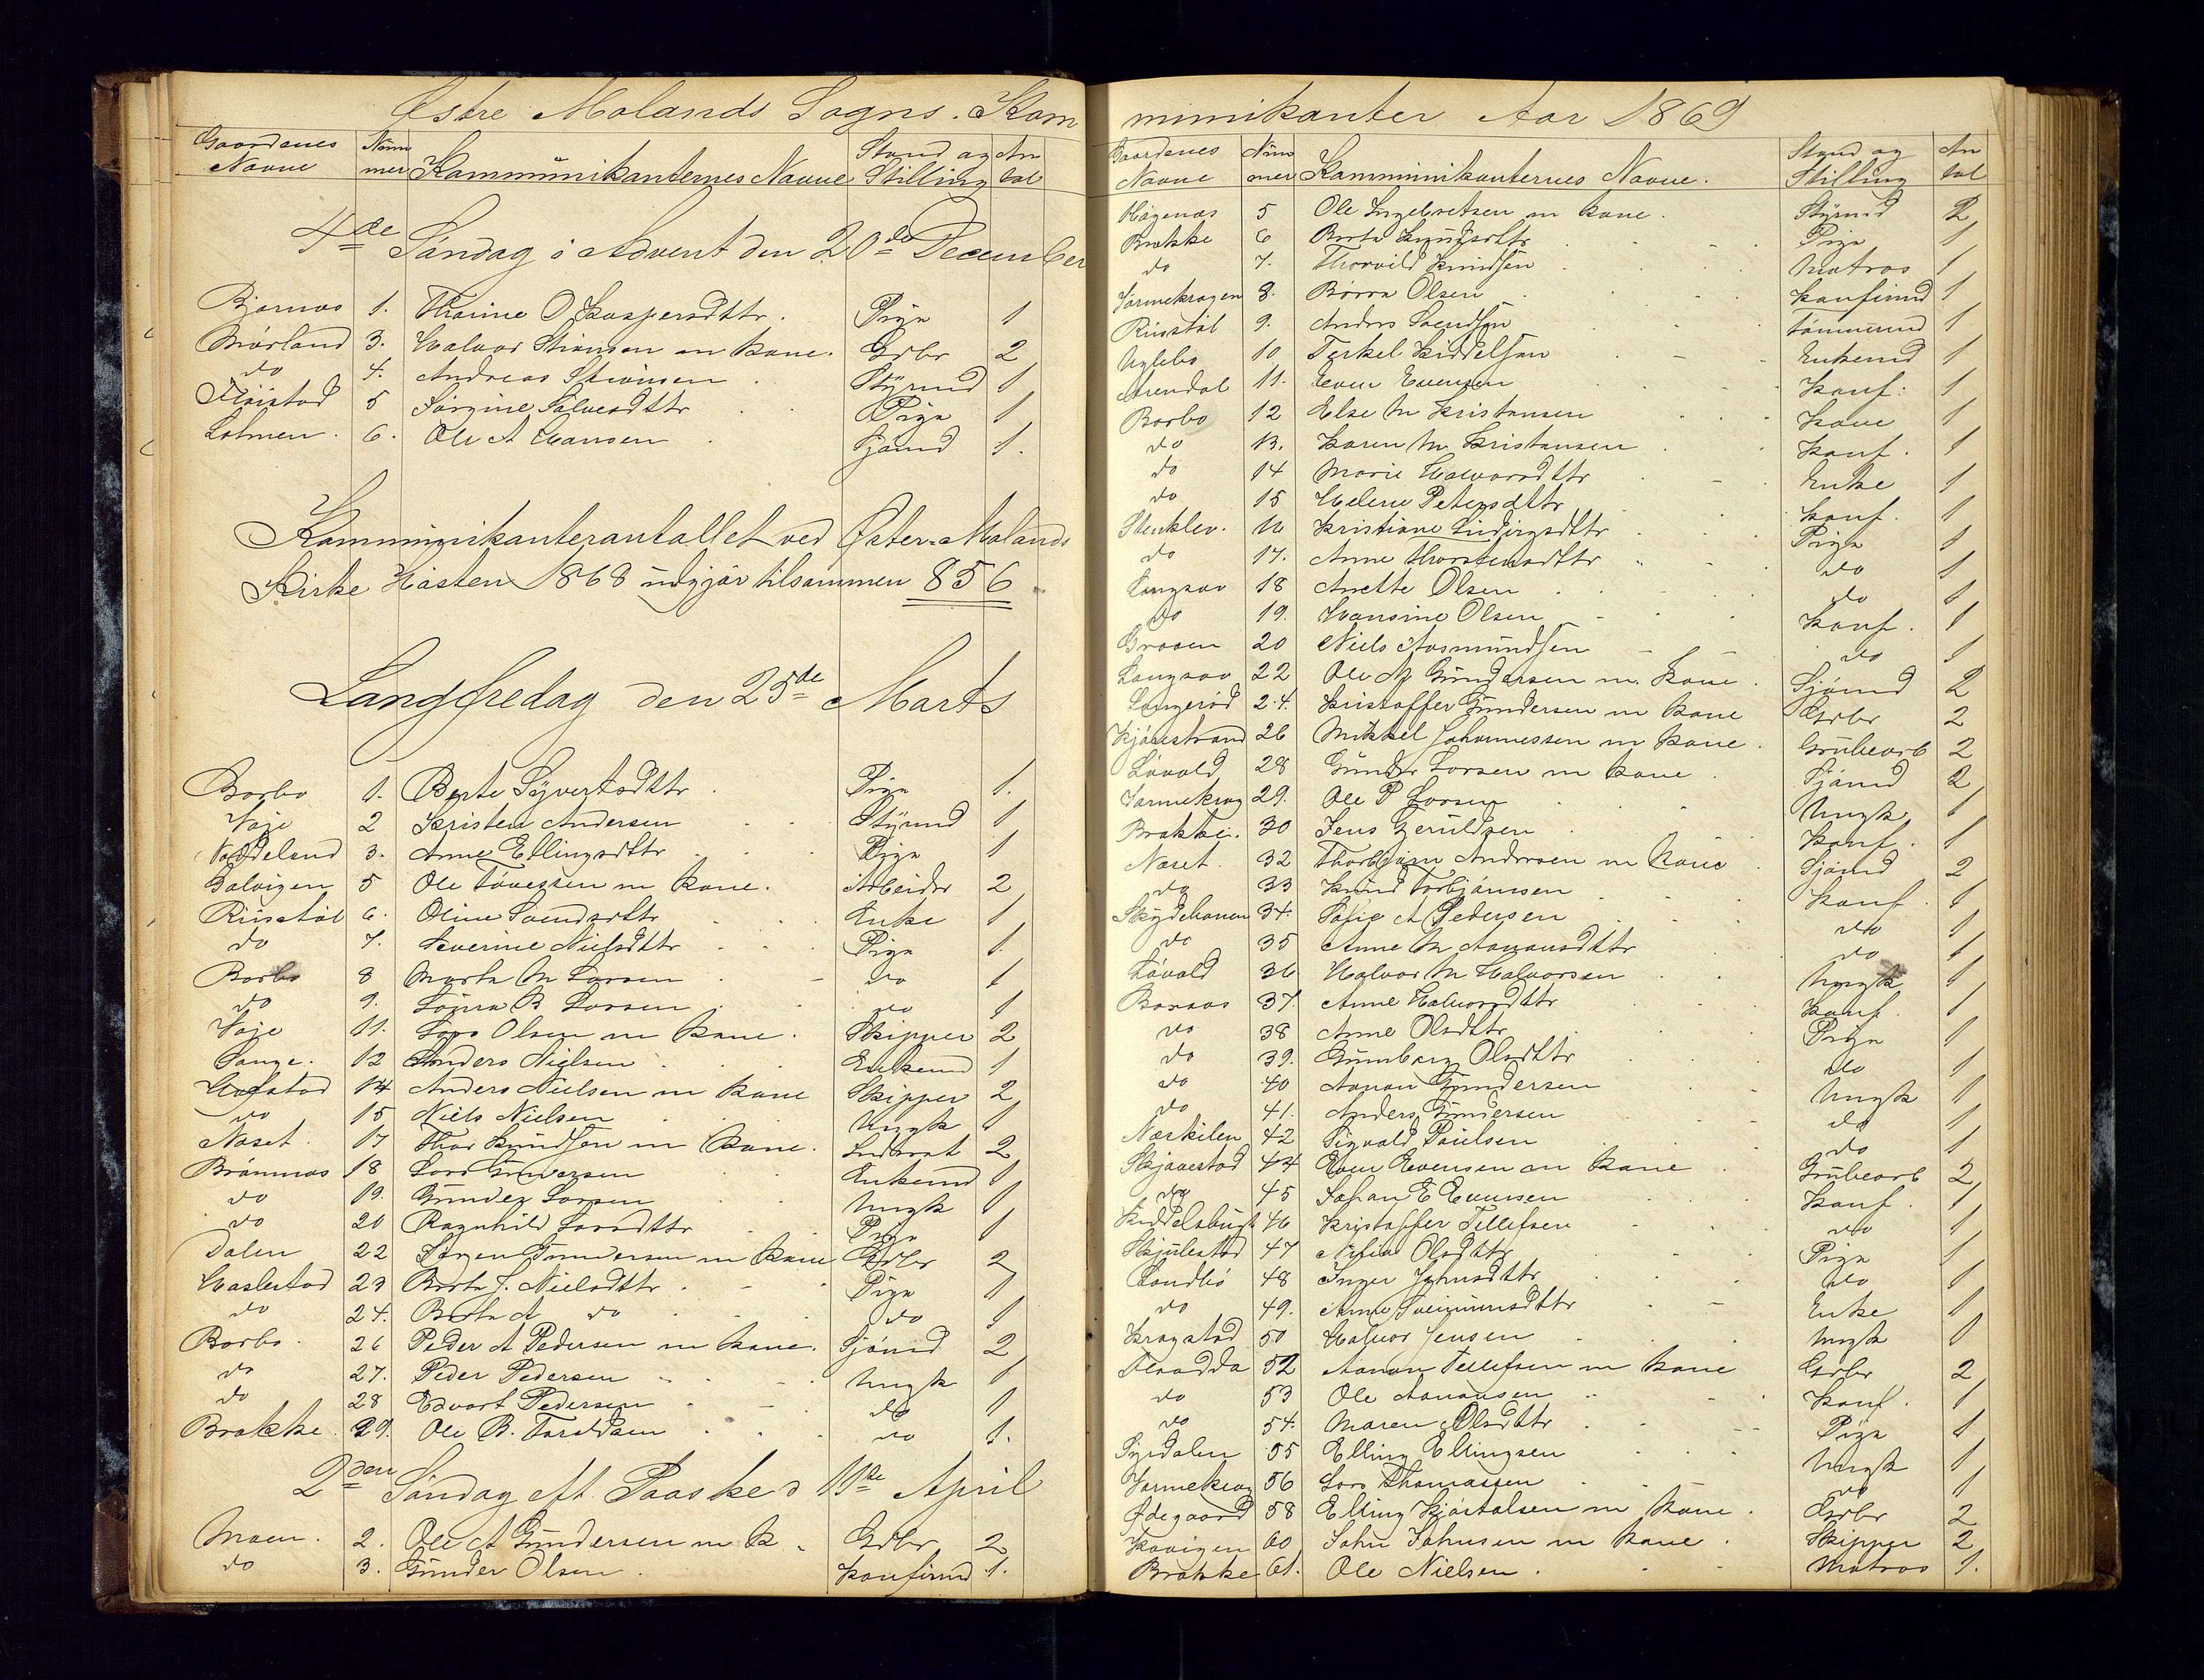 Østre Molands Sogns. Kommunikanter Aar 1869
Gaardenes Navne Nummer Kommunikanternes Navne Stand og Stilling Antal
4de Søndag i Advent den 20de December
Bjornes 1. Thorine O Kaspersdttr. Pige 1
Mørland 3. Halvor Stiansen m Kone. Grdbr 2
do 4. Andreas Stiansen Styrmd 1
Fløistad 5 Jørgine Salvesdttr Pige 1
Holmen. 6. Ole A Hansen Sjømd 1.
Kommunikanterantallet ved Øster-Molands
Kirke Høsten 1868 udgjør tilsammen 856
Langfredag den 25de Marts
Borbo 1. Berte Syvertsdttr. Pige 1.
Vaje 2 Kristen Andersen Styrmd 1
Vaddeland 3. Anne Ellingsdttr Pige 1
Salvigen 5 Ole Tøvessen m Kone. Arbeider 2
Risstøl 6. Oline Svendsdttr Enke 1
do 7. Severine Nielsdttr Pige 1.
Borbo 8 Marta M Larsen do 1
do 9. B Larsen do 1
Vaje 11. Lars Olsen m Kone. Skipper 2
Sange. 12 Anders Nielsen Enkemd 1
Hofstad 14 Anders Nielsen m Kone Skipper 2
do 15 Niels Nielsen Ungk 1
Naset. 17 Thor Knudsen m Kone. 2
Brømnes 18 Lars Gundersen Enkemd 1
do 19. Gunder Larsen Ungk 1
do 20 Ragnhild Larsdttr Pige 1
Dalen 22 Jørgen Gundersen m Kone Grdbr 2
Haslestad 23 Berte S. Nielsdttr. Pige 1
do 24. Berte A do do 1
Borbo. 26 Peder A Pedersen m Kone. Sjømd 2
do 27. Peder Pedersen Ungk 1
do 28 Edvart Pedersen do 1
Brekke. 29. Ole B. Taraldsen do 1.
2den Søndag eft Paaske d 11de April
Moen. 2. Ole A Gundersen m K. Grdbr 2
do 3. Gunder Olsen. Konfirmd 1.
Gaardenes Navne Nummer Kommunikanternes Navne. Stand og Stilling Antal
Hagenes 5 Ole Ingebretsen m Kone. Styrmd 2
Brekke 6 Berte Knudsdttr Pige 1
do 7. Thorvild Knudsen Matros 1
Jormekragen 8. Børre Olsen Konfirmd 1
Risstøl 9. Anders Svendsen Tømmermd 1
Uglebo 10 Terkel Kiddelsen Enkemd 1
Arendal 11. Even Evensen Konf: 1
Borbo 12 Else M Kristensen Kone 1
do 13. Karen M. Kristensen Konf. 1
do 14 Marie Halvorsdttr Enke 1
do 15 Helene Petersdttr Konf. 1
Stenklev. 16 Kristiane Ludvigsdttr Pige 1
do 17. Anne Thorstensdttr do 1
Langsev 18 Anette Olsen do 1
do 19. Hansine Olsen Konf. 1
Braaen 20 Niels Aasmundsen do 1
Langsev 22 Ole N Gundersen m. Kone. Sjømd 2
Longerød 24. Kristoffer Gundersen m Kone Grdbr 2
Kjønstrand 26 Mikkel Johannessen m Kone. Grubearb 2
Løvold 28 Gunder Larsen m Kone. Sjømd 2
Jormekrag 29. Ole P Larsen Ungk 1
Brekke. 30 Jens Geruldsen Konf. 1
Naset. 32 Thorbjørn Andersen m Kone Sjømd 2
do 33 Knud Torbjørnsen Konf. 1
34. Sofie A Pedersen do 1
do 35 Anne M Aanonsdttr do 1
Løvold 36 Halvor M Halvorsen Ungk 1
Boraas 37. Anne Halvorsdttr Konf. 1
do 38 Anne Olsdttr Pige 1
do 39. Gunborg Olsdttr do 1
do 40 Aanon Gundersen Ungk 1
do 41. Anders Gundersen do 1
Nærkilen 42 Sigvald Poulsen do 1
Skjævestad 44 Even Evensen m Kone Grubearb 2
do 45 Johan E Evensen Konf. 1
Kiddelsbugt 46 Kristoffer Tellefsen do 1
Skjulestad 47 Olsdttr Pige 1
Landbø 48 Inger Johnsdttr do 1
do 49. Anne Enke 1
Kragstad 50 Halvor Jensen Ungk 1
Flaadda 52 Aanon Tellefsen m Kone Grdbr 2
do 53 Ole Aanonsen Konf. 1
do 54. Maren Olsdttr Pige 1
Syrdalen 55 Elling Ellingsen Ungk 1
Jormekrag 56 Lars Thomassen do 1
Ødegaard 58 Elling Kjøstelsen m Kone. Grdbr 2
Havigen 60 John Johnsen m Kone. Skipper 2
Brekke 61. Ole Nielsen. Matros 1.